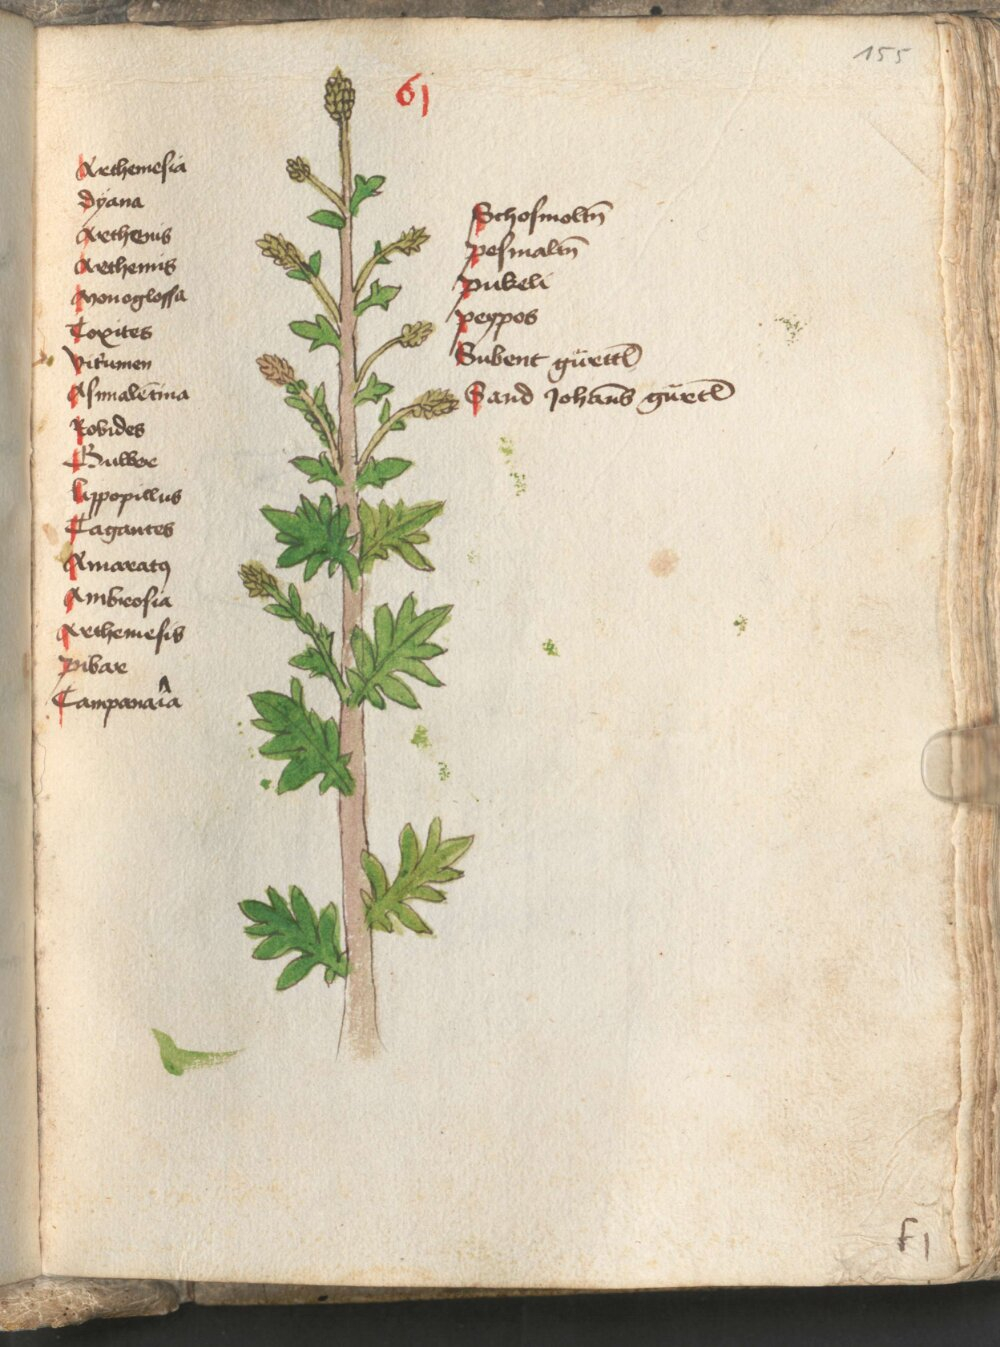 155
61
Arthemesia
dyana
Arthenis
Arthemis
Monoglossa
Toxites
Vitumen
Asmalētina
Robides
Bulbox
lippopillus
Tagantes
Amaratꝰ
Ambrosia
Arthemesis
pibax
Campanaria
Schosmoltñ
pesmalñ
pukeli
peypos
Subent gürttl
Sand Johanns gürtl
f 1